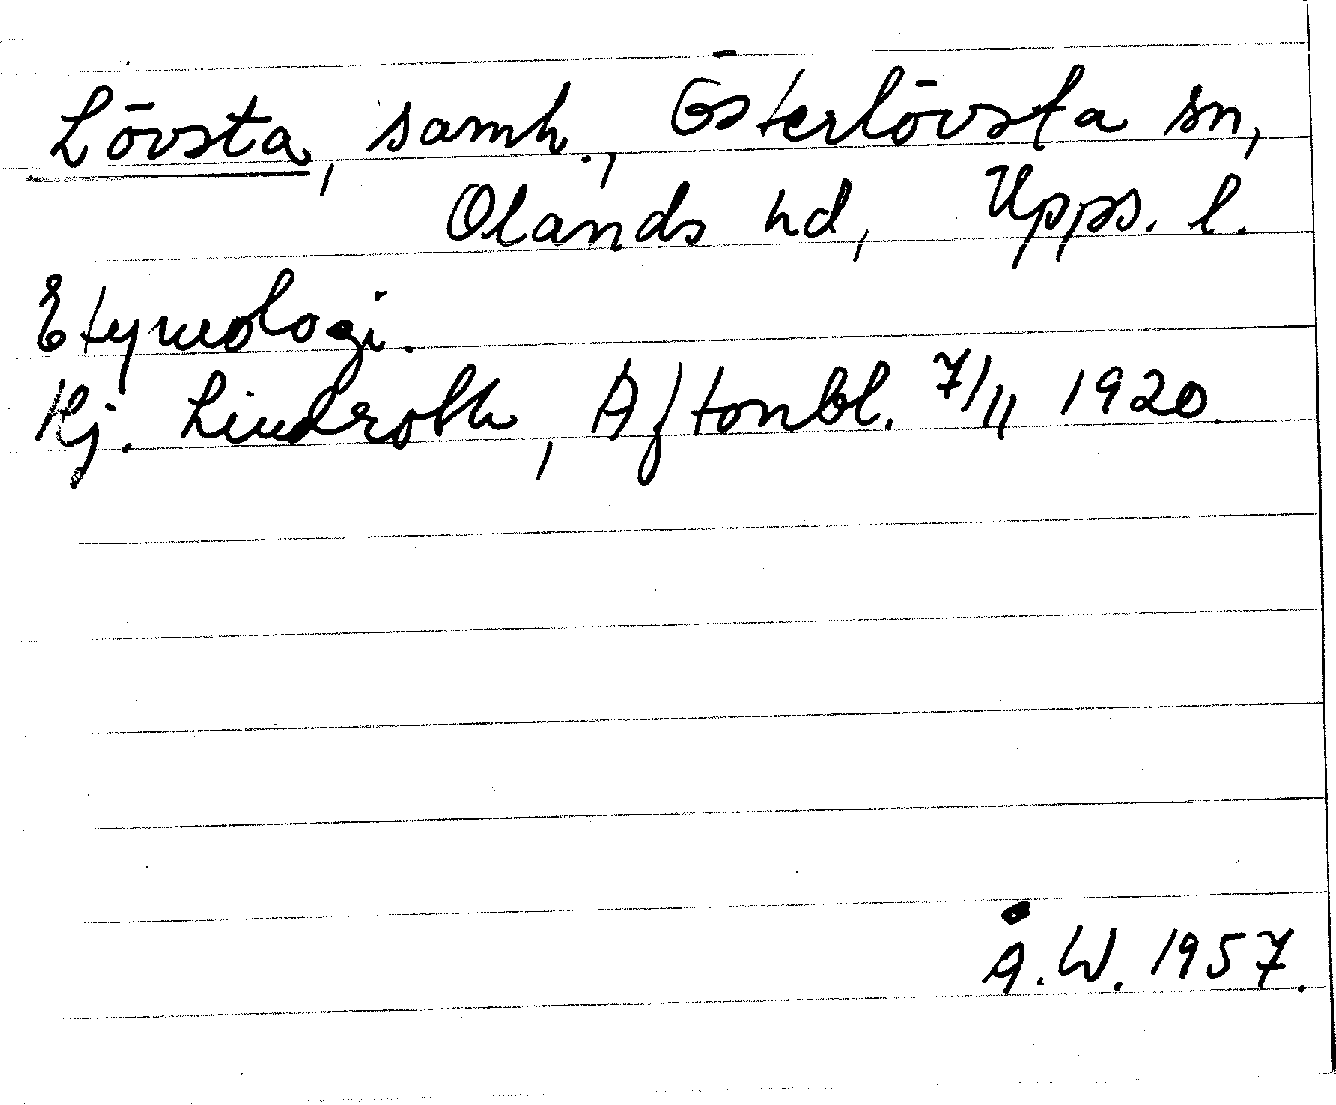 Lövsta, samh., Österlövsta sn,
Olands hd, Upps. l.
Etymologi.
Hj. Lindroth, Aftonbl. 7/11 1920.
Å.W. 1957.